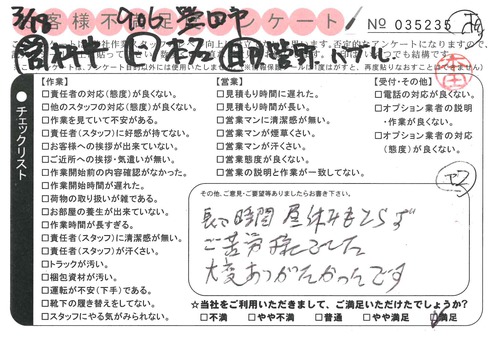 3/18 906 豊田市
お客様不満足アンケート No 035235
チェックリスト
【作業】
□責任者の対応(態度)が良くない。
□他のスタッフの対応(態度)が良くない。
□作業を見ていて不安がある。
□責任者(スタッフ)に好感が持てない。
□お客様への挨拶が出来ていない。
□ご近所への挨拶・気遣いが無い。
□作業開始前の内容確認がなかった。
□作業開始時間が遅れた。
□荷物の取り扱いが雑である。
□お部屋の養生が出来ていない。
□作業時間が長すぎる。
□責任者(スタッフ)に清潔感が無い。
□責任者(スタッフ)が汗くさい。
□トラックが汚い。
□梱包資材が汚い。
□運転が不安(下手)である。
□靴下の履き替えをしてない。
□スタッフにやる気がみられない。
【営業】
□見積もり時間に遅れた。
□見積もり時間が長い。
□営業マンに清潔感が無い。
□営業マンが煙草くさい。
□営業マンが汗くさい。
□営業態度が良くない。
□営業の説明と作業が一致してない。
【受付・その他】
□電話の対応が良くない。
□オプション業者の説明
・作業が良くない。
□オプション業者の対応
(態度)が良くない。
その他、ご意見・ご要望等ありましたらお書き下さい。
長い時間 昼休みもとらず
ご苦労様でした
大変ありがたかったです
☆当社をご利用いただきまして、ご満足いただけたでしょうか?
□不満 □やや不満 □普通 □やや満足 □満足